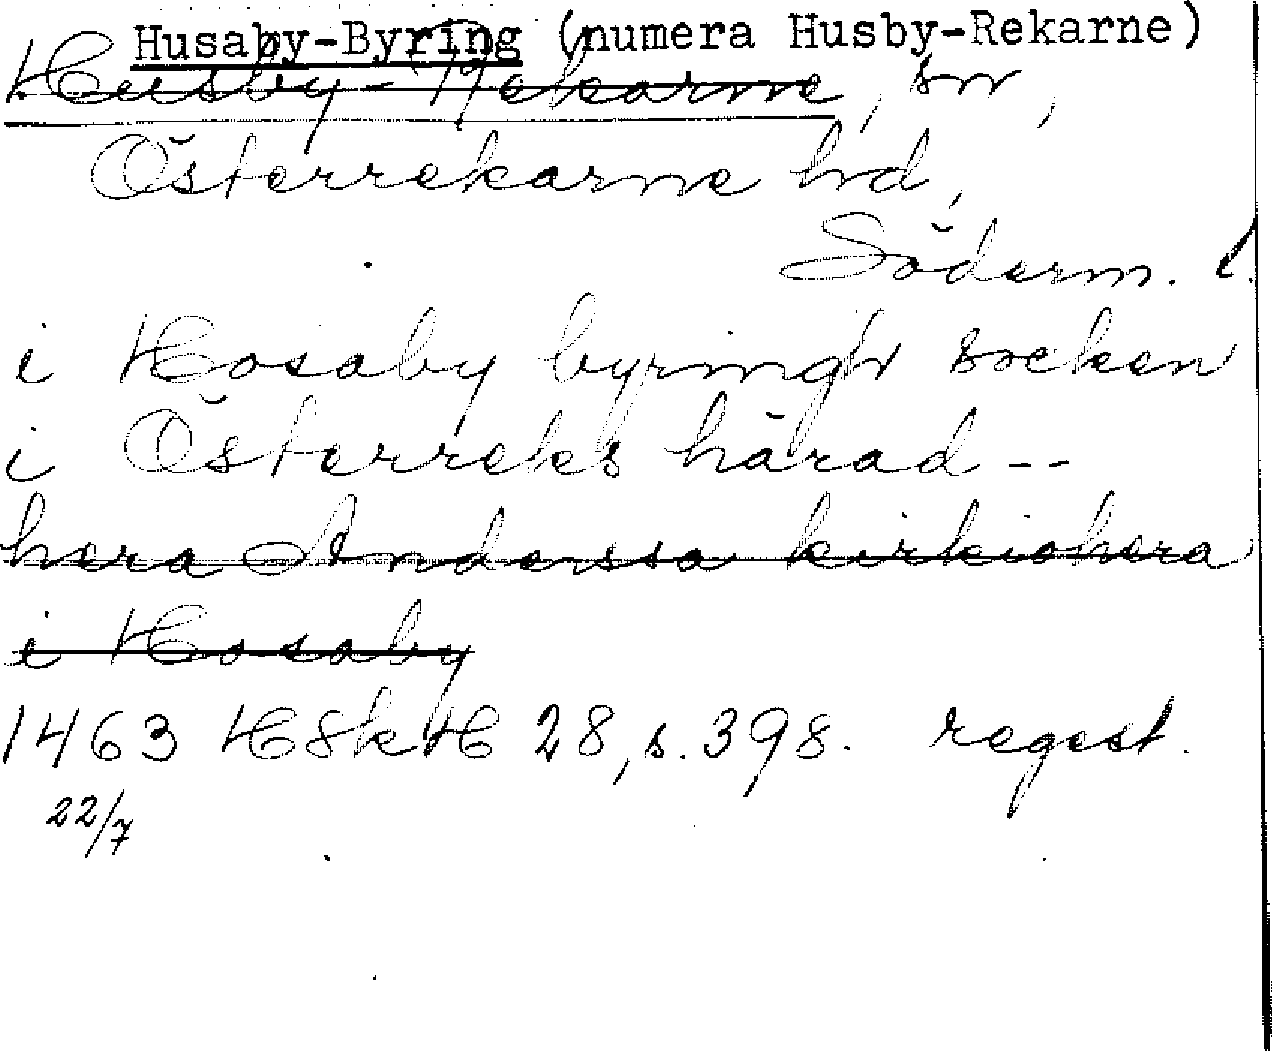 Husaby-Byring (numera Husby-Rekarne)
Husby-Rekarne, sn,
Österrekarne hd,
Söderm. l.
i Hosaby byringh socken
i Österreks härad--
hera Anderssa kirkiohera
i Hosaby
1463 HSkH 28, s. 398. regest.
22/7